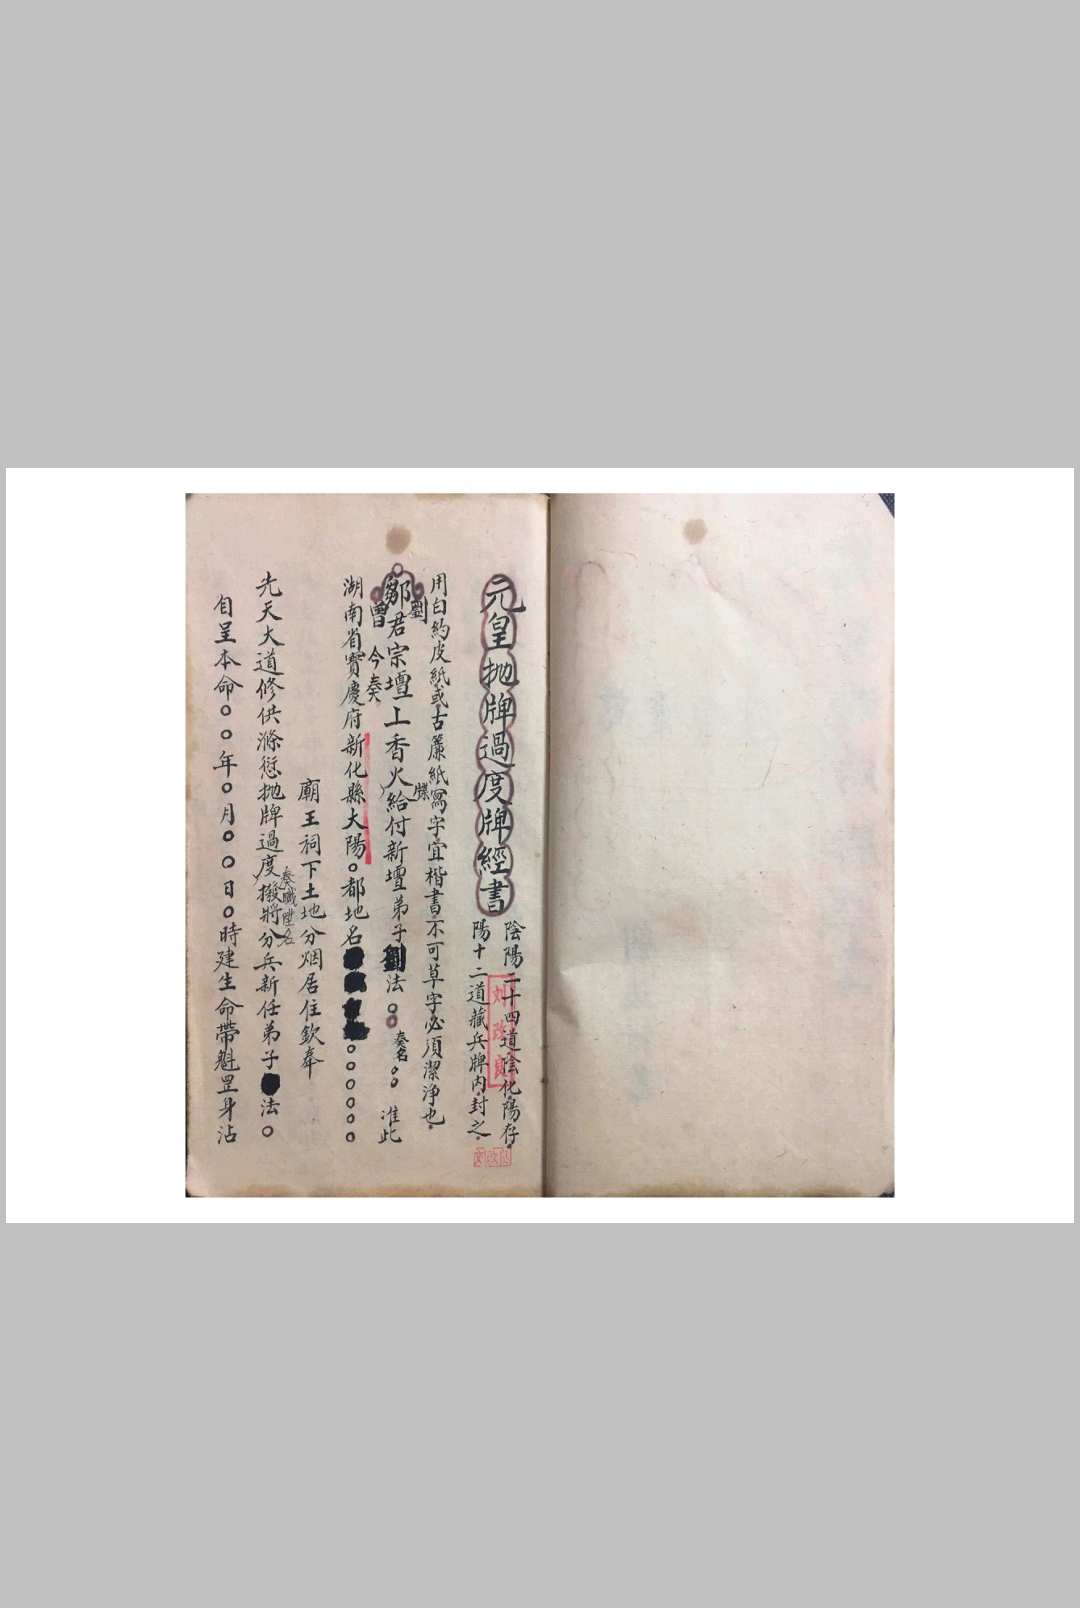 元皇抛牌過度牌經書
陰陽二十四道陰化陽存
陽十二道藏兵牌內封之
刘政良
用白約皮紙或古簾紙寫字宜楷書不可草字必須潔淨也
劉
鄒君宗壇上香火給付新壇弟子劉法○○奏名○○准此
牒
曾 今奏
湖南省寶慶府新化縣大陽○都地名○○○○○
廟王祠下土地分烟居住欽奉
奏職陞名
先天大道修供滌愆抛牌過度撥將分兵新任弟子法○
自呈本命○○年○月○○日○時建生命帶魁罡身沾